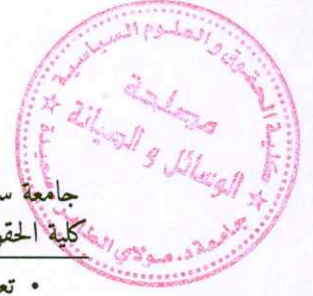 كلية الحقوق و العلوم السياسية
مصلحة
الوسائل و الصيانة
جامعة د. مولاي الطاهر سعيدة
جامعة س
كلية الحقو
• تع